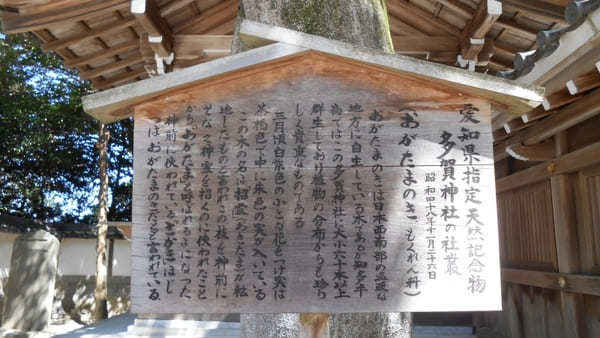 愛知県指定天然記念物
多賀神社の社叢
昭和四八年十一月二六日
（おがたまのき、もくれん科）
おがたまのきは日本西南部の温暖な
地方に自生している木であるが知多半
島ではこの多賀神社に大小六十本以上
群生しており植物の分布からも珍ら
しく貴重なものである
三月頃白黄色の小さな花をつけ実は
茶褐色で中に朱色の実が入いている
この木の名は招霊（おきたま）が転
化したものと言われこの枝を神前に
そなへ神霊を招くのに使われたこと
から、おがたまと呼ばれるようになった
神前に使われている、さかきはじ
つはおがたまのきだとも言われている、